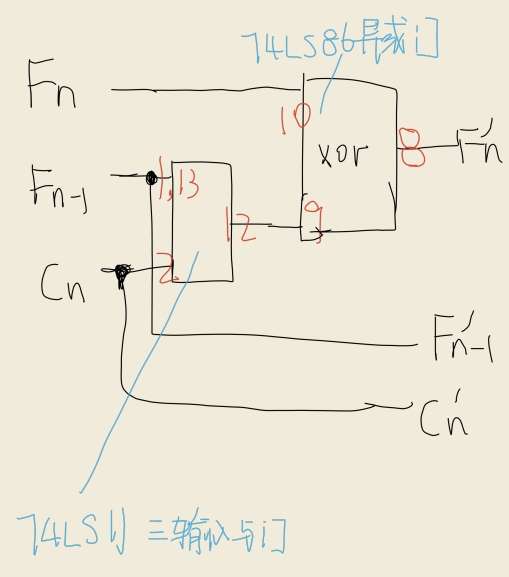 74LS86异或门
Fn
10
xor
8
Fn'
Fn-1
1,13
9
12
Cn
2
Fn-1'
Cn'
74LS11 三输入与门